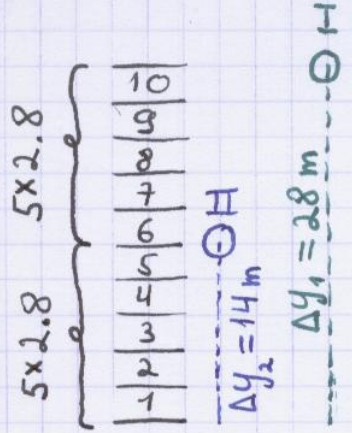 5×2.8
5×2.8
10
9
8
7
6
5
4
3
2
1
H
Δy₂ = 14 m
H
Δy₁ = 28 m